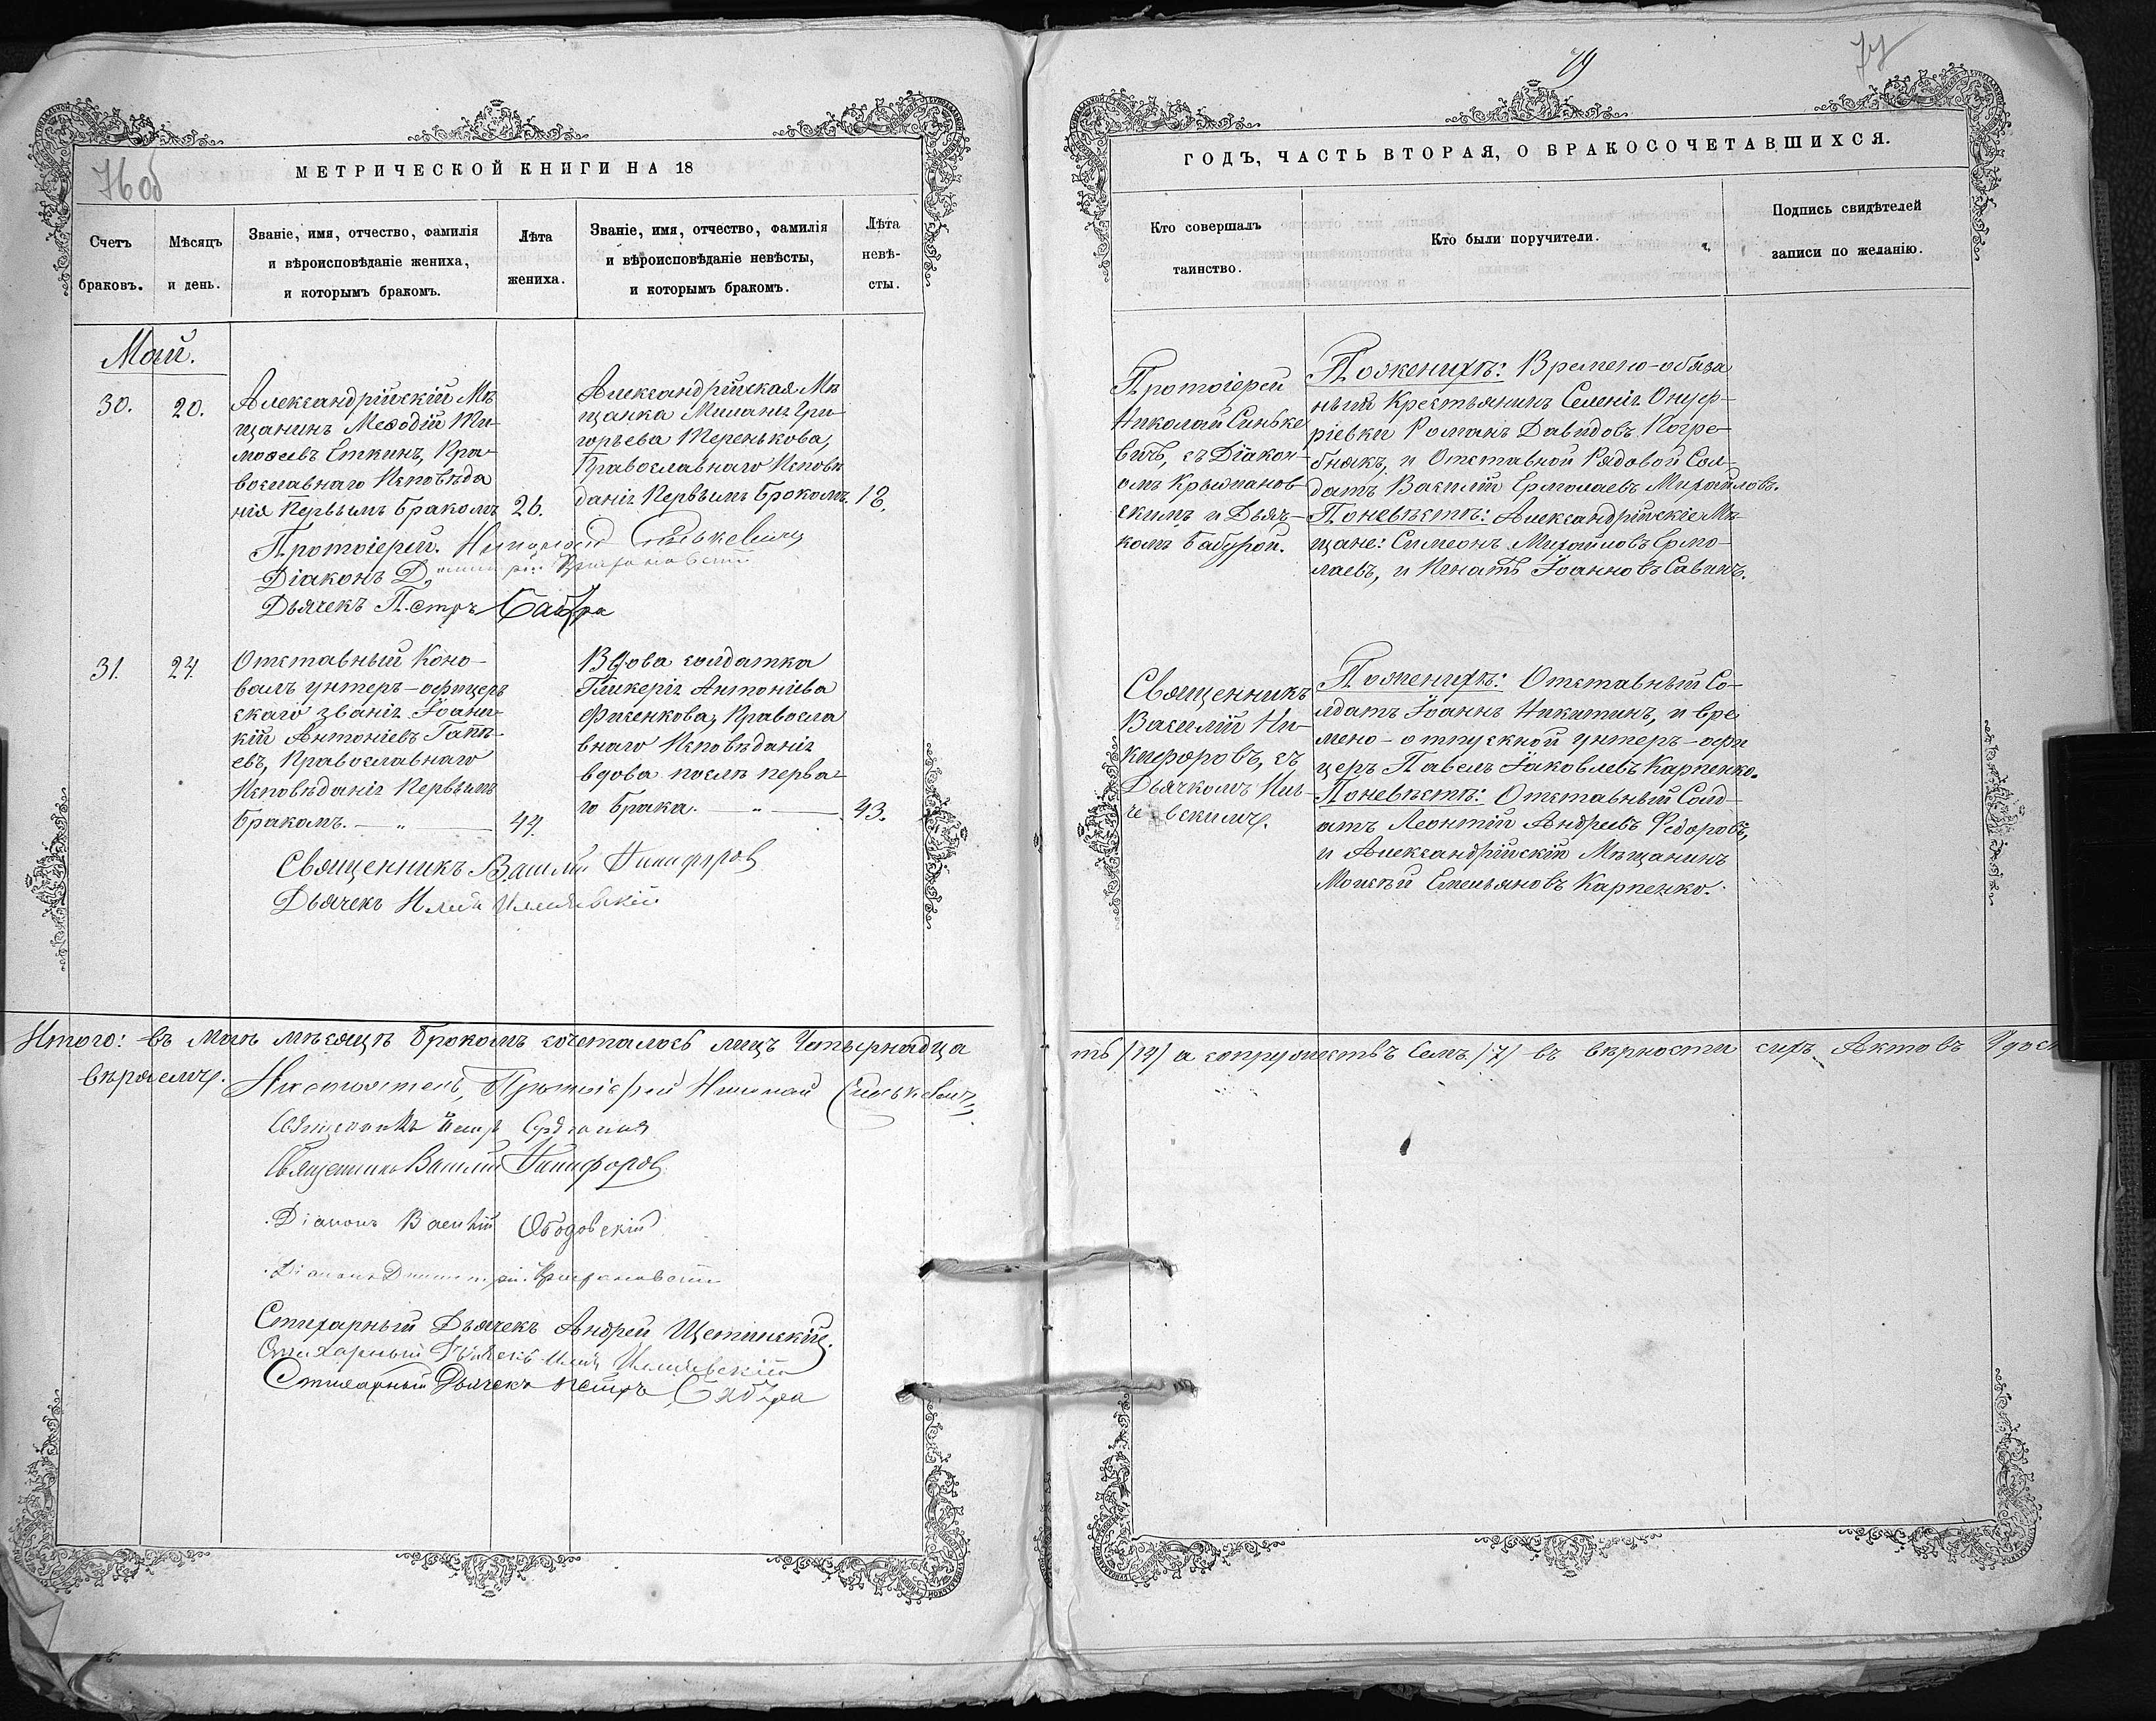 76 об
МЕТРИЧЕСКОЙ КНИГИ НА 18
Счетъ
браковъ.
Мѣсяцъ
и день.
Званіе, имя, отчество, фамилія
и вѣроисповѣданіе жениха,
и которымъ бракомъ.
Лѣта
жениха.
Званіе, имя, отчество, фамилія
и вѣроисповѣданіе невѣсты,
и которымъ бракомъ.
Лѣта
невѣ-
сты.
Май.
30.
20.
Александрійскій Мѣ
щанинъ Меѳодій Ти-
моѳеевъ Еткинъ, Пра-
вославнаго Исповѣда
нія Первымъ бракомъ
26.
Александрійская Мѣ
щанка Миланія Гри-
горьева Теренькова,
Православнаго Исповѣ
данія Первымъ Бракомъ.
18.
Протоіерей. Николай Синькевичъ
Діаконъ Димитрій
Дьячекъ Петръ Бабура
31.
24.
Отставный Коно-
валъ унтеръ-офицер
скаго званія Іоани-
кій Антоніевъ
евъ, Православнаго
Исповѣданія Первымъ
Бракомъ. — „ —
44.
Вдова солдатка
Гликерія Антоніева
Фисенкова, Правосла
внаго Исповѣданія
вдова послѣ перва-
го брака. — „ —
43.
Священникъ Василій Никифоровъ
Дьячекъ Илія
Итого: въ Маѣ мѣсяцѣ бракомъ сочеталось лицъ Четырнадца
вѣряемъ.
Настоятель, Протоіерей Николай Синькевичъ
Священникъ Петръ
Священникъ Василій Никифоровъ
Діаконъ Василій Ободовскій
Діаконъ Димитрій
Стихарный Дьячекъ Андрей Щетинскій.
Стихарный Дьячекъ Илія
Стихарный Дьячекъ Петръ Бабура
79
77
ГОДЪ, ЧАСТЬ ВТОРАЯ, О БРАКОСОЧЕТАВШИХСЯ.
Кто совершалъ
таинство.
Кто были поручители.
Подпись свидѣтелей
записи по желанію.
Протоіерей
Николай Синьке
вичъ, съ Діакон-
омъ Крыжанов
скимъ и Дьяч-
комъ Бабурой.
По женихѣ: Времено-обяза
ный Крестьянинъ Селенія Онуф-
ріевки Романъ Давидовъ Погре-
бнякъ, и Отставной Рядовой Сол-
датъ Василій Ермолаевъ Михайловъ.
По невѣстѣ: Александрійскіе Мѣ-
щане: Симеонъ Михайловъ Ермо-
лаевъ, и Игнатъ Іоанновъ Савинъ.
Священникъ
Василій Ни-
кифоровъ, съ
Дьячкомъ
По женихѣ: Отставный Со-
лдатъ Іоаннъ Никитинъ, и вре
мено-отпускной унтеръ-офи
церъ Павелъ Іаковлевъ Карпенко.
По невѣстѣ: Отставный Солд-
атъ Леонтій Андреевъ Федоровъ,
и Александрійскій Мѣщанинъ
Моисей Емельяновъ Карпенко.
ть /14/ а супружествъ Семь /7/ въ вѣрности сихъ Актовъ Удосто